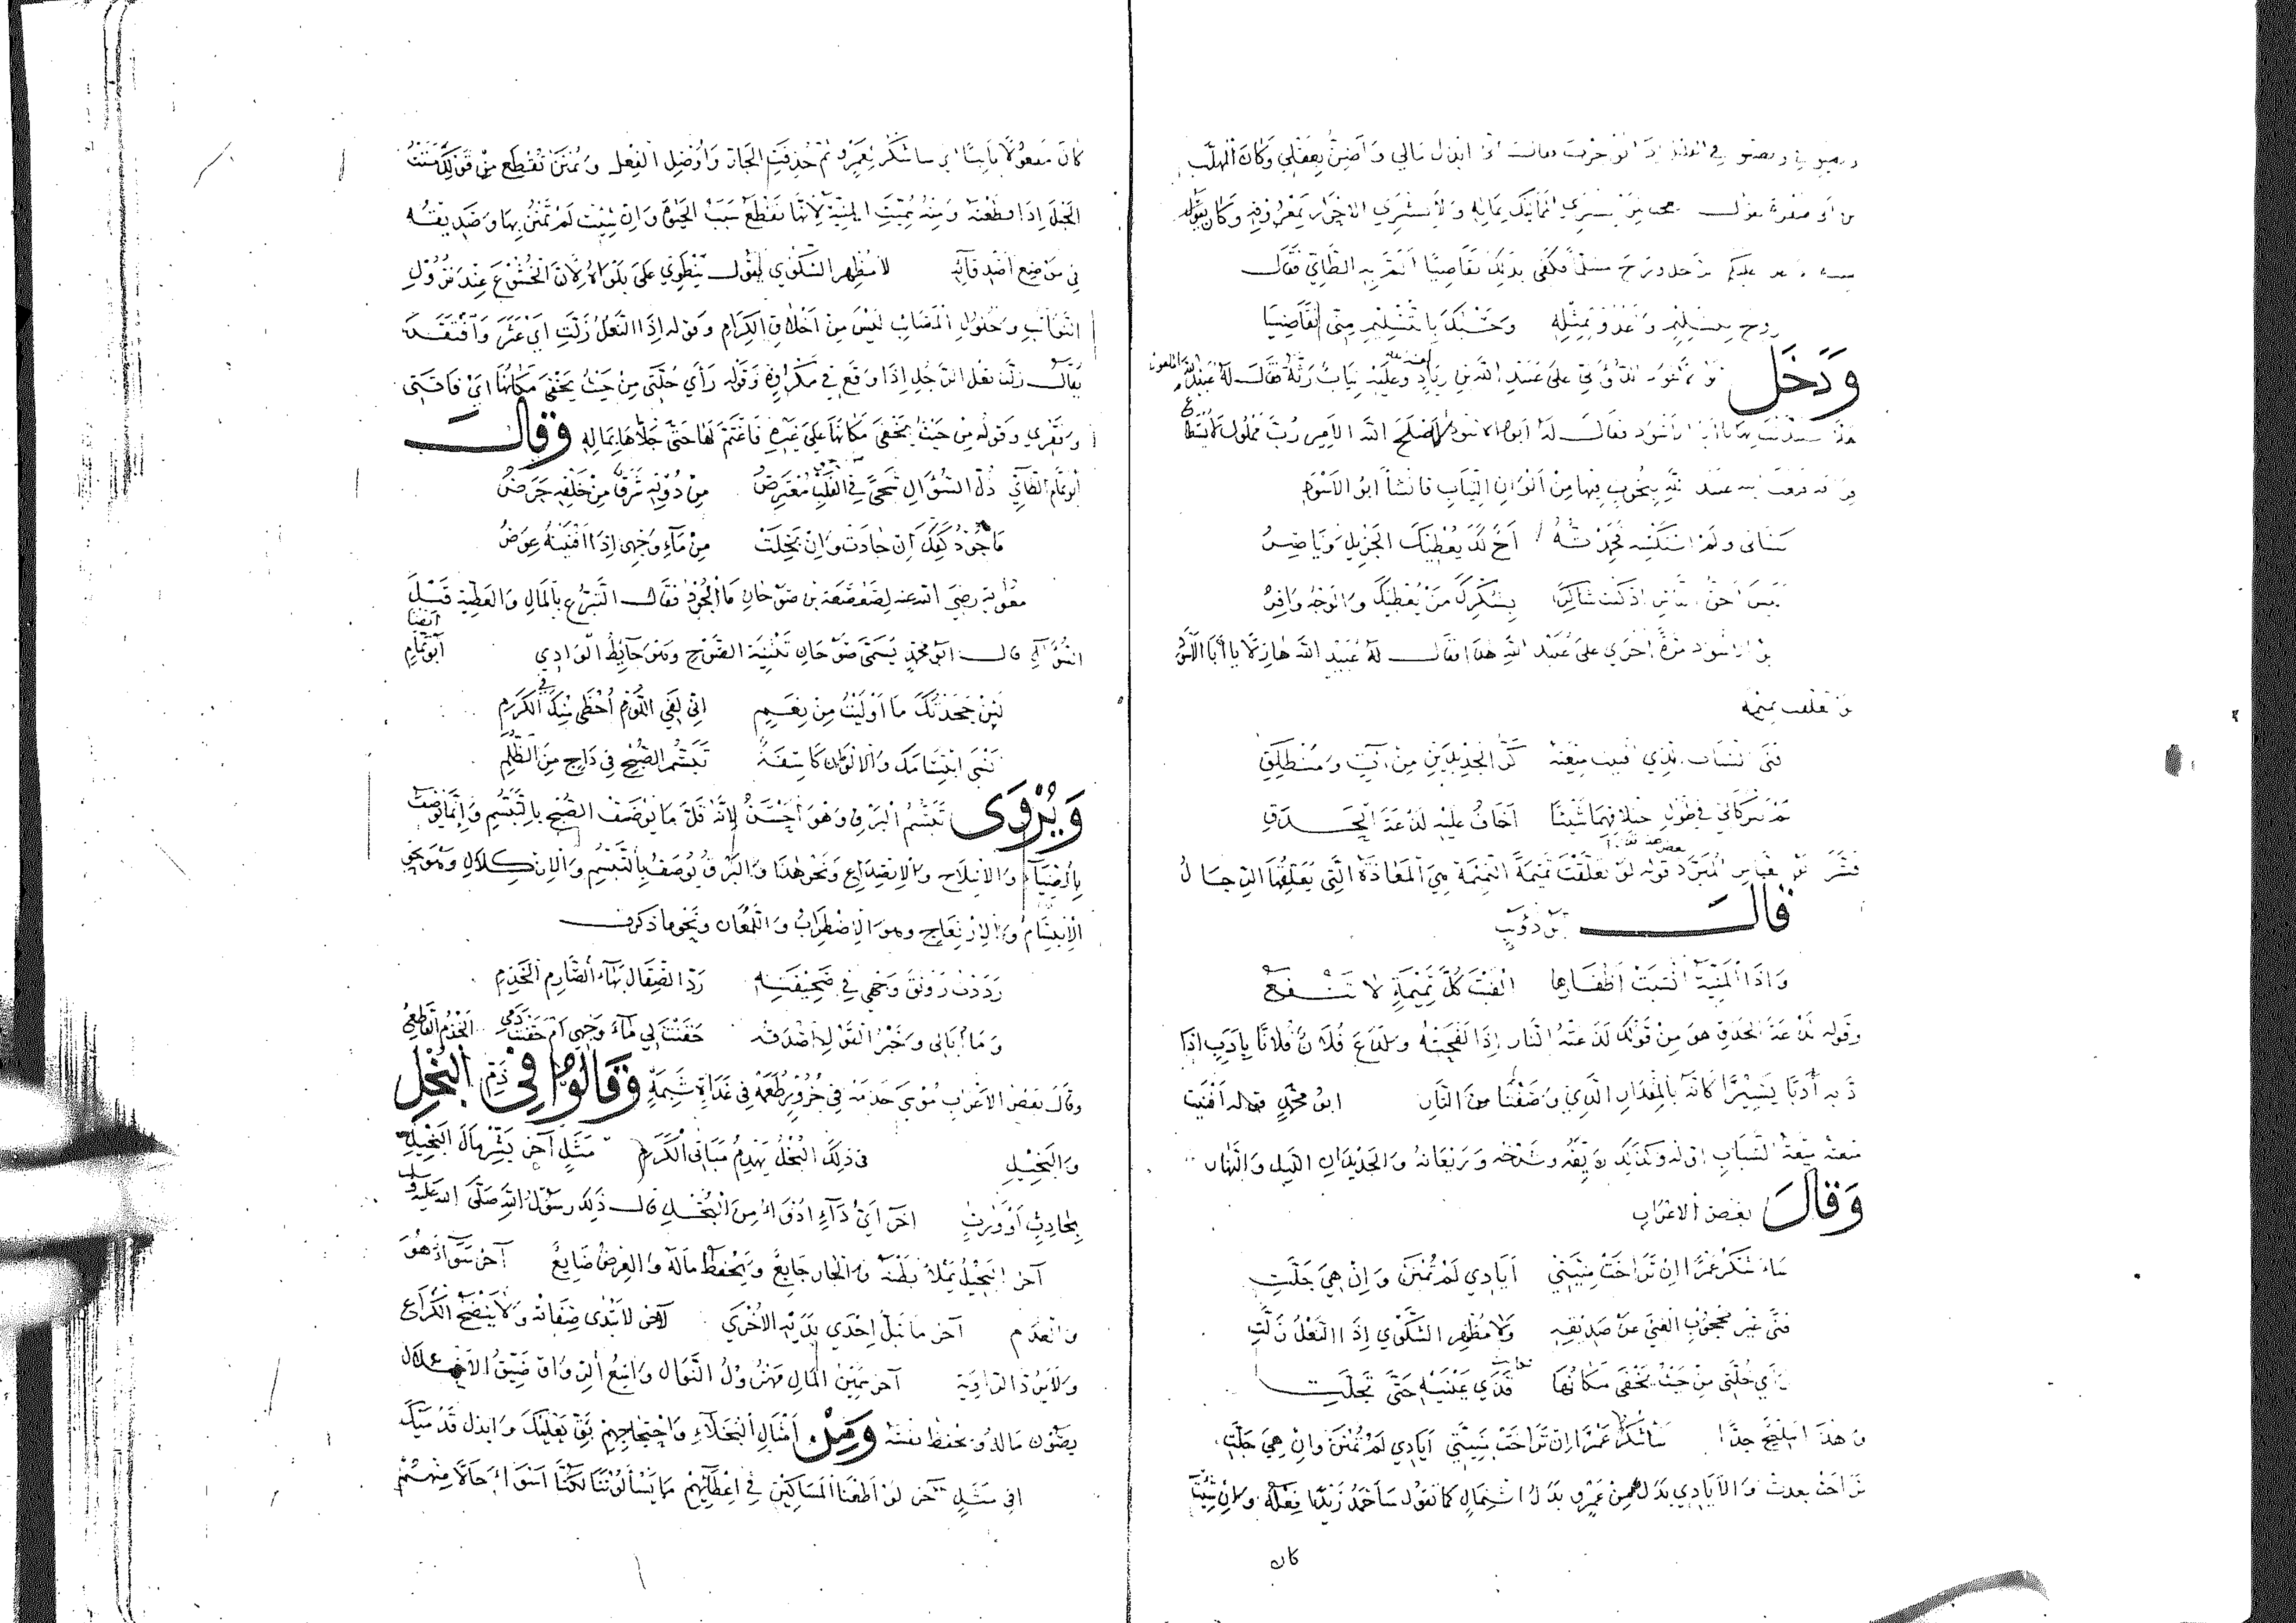 في إذا أبذل مالي وأضن بعقلي وكان المهلب
بن أبي صفرة يقول عجبت لمن يشتري المماليك بماله ولا يشتري الاحرار بمعروفه وكان يقول
فكفى بذلك تقاضيا الم به الطائي فقال
روح بتسليم وغدو بمثله وحسبك بالتسليم مني تقاضيا
ودخل أبو الأسود الدؤلي على عبيد الله بن زياد وعليه ثياب رثة فقال له عبيد الله
يا أبا الأسود فقال له أبو الأسود أصلح الله الأمير رب مملول لا يستطاع
فراقه فبعث إليه عبيد الله بتخوت فيها من ألوان الثياب فانشأ ابو الأسود
كساني ولم استكسه فحمدته أخ لك يعطيك الجزيل وياصر
وإن أحق الناس إن كنت شاكرا بشكرك من يعطيك والوجه وافر
أبو الأسود مرة اخرى على عبيد الله هذا فقال له عبيد الله هازلا يا أبا الأسود
لو تعلقت تميمة
فنى الشباب الذي أفنيت ميعته كر الجديدين من آت ومنطلق
لم يتركا لي في طول اختلافهما شيئا أخاف عليه لذعة الحدق
فسر أبو العباس المبرد قوله لو تعلقت تميمة التميمة هي المعاذة التي يعلقها الرجال
قال أبو ذؤيب
وإذا المنية أنشبت أظفارها ألفيت كل تميمة لا تنفع
وقوله لذعة الحدق هو من قولك لذعته النار إذا لفحته ولذع فلان فلانا بأدب إذا
أدبه أدبا يسيرا كأنه بالمقدار الذي وصفنا من النار ابو محمد قوله أفنيت
ميعته ميعة الشباب أوله وكذلك ريقه وشرخه وريعانه والجديدان الليل والنهار
وقال بعض الاعراب
سأشكر عمرا إن تراخت منيتي أيادي لم تمنن وإن هي جلت
فتى غير محجوب الغنى عن صديقه ولا مظهر الشكوى إذا النعل زلت
رأى خلتي من حيث يخفى مكانها قذى عينيه حتى تجلت
وهذا مليح جدا سأشكر عمرا إن تراخت منيتي أيادي لم تمنن وإن هي جلت
تراخت بعدت والأيادي بدل من عمرو بدل اشتمال كما تقول سأحمد زيدا فعله وإن شئت
كان
كان مفعولا ثانيا اي سأشكر لعمرو ثم حذفت الجار وأوصل الفعل وتمنن تقطع من قولك مننت
الحبل إذا قطعته ومنه سميت المنية لأنها تقطع سبب الحيوة وإن شئت لم تمنن بها وصديقه
في موضع أصدقائه لا مظهر الشكوى يقول ينطوي على بلواه لأن الخشوع عند نزول
النوائب وحلول المصائب ليس من أخلاق الكرام وقوله إذا النعل زلت أي عثر وافتقد
يقال زلت نعل الرجل إذا وقع في مكروه وقوله رأى خلتي من حيث يخفى مكانها أي فاقتي
وفقري وقوله من حيث يخفى مكانها على غيره فاغتم لها حتى جلاها بماله وقال
أبو تمام الطائي ذل السؤال شجى في القلب معترض من دونه شرق من خلفه جرض
ما جود كفك إن جادت وإن بخلت من ماء وجهي إذا أفنيته عوض
معوية رضي الله عنه لصعصعة بن صوحان ما الجود فقال التبرع بالمال والعطية قبل
السؤال قال ابو محمد يسمى صوحان تثنية الصوح وهو حائط الوادي أيضا أبو تمام
لئن جحدتك ما أوليت من نعم إني لفي اللؤم أحظى منك في الكرم
أنسى ابتسامك والالوان كاسفة تبسم الصبح في داج من الظلم
ويروى تبسم البرق وهو أحسن لانه قل ما يوصف الصبح بالتبسم وإنما يوصف
بالضياء والانبلاج والانصداع ونحو هذا والبرق يوصف بالتبسم والانكلال وهو نحو
الابتسام والارتعاج وهو الاضطراب واللمعان ونحو ما ذكرت
رددت رونق وجهي في صحيفته رد الصقال بهاء الصارم الخذم
وما أبالي وخير القول أصدقه حقنت لي ماء وجهي أم حقنت دمي الخذم القاطع
وقال بعض الاعراب وقالوا في ذم البخل
والبخيل في ذلك البخل يهدم مباني الكرم مثل آخر بشر مال البخيل
بحادث أو وارث آخر أي داء أدوأ من البخل قال ذلك رسول الله صلى الله عليه وسلم
آخر البخيل يملأ بطنه والجار جايع ويحفظ ماله والعرض ضايع آخر سواء هو
والعدم آخر ما تبل إحدى يديه الأخرى آخر لا تندى صفاته ولا ينضج الكراع
ولا يرد الراوية آخر سمين المال مهزول النوال واسع الرواق ضيق الأخلاق
يصون ماله ويحفظ نفسه ومن أمثال البخلاء واحتجاجهم بق نعليك وابذل قدميك
في مثل آخر لو أطعنا المساكين في إعطائهم ما يسألوننا لكنا أسوأ حالا منهم